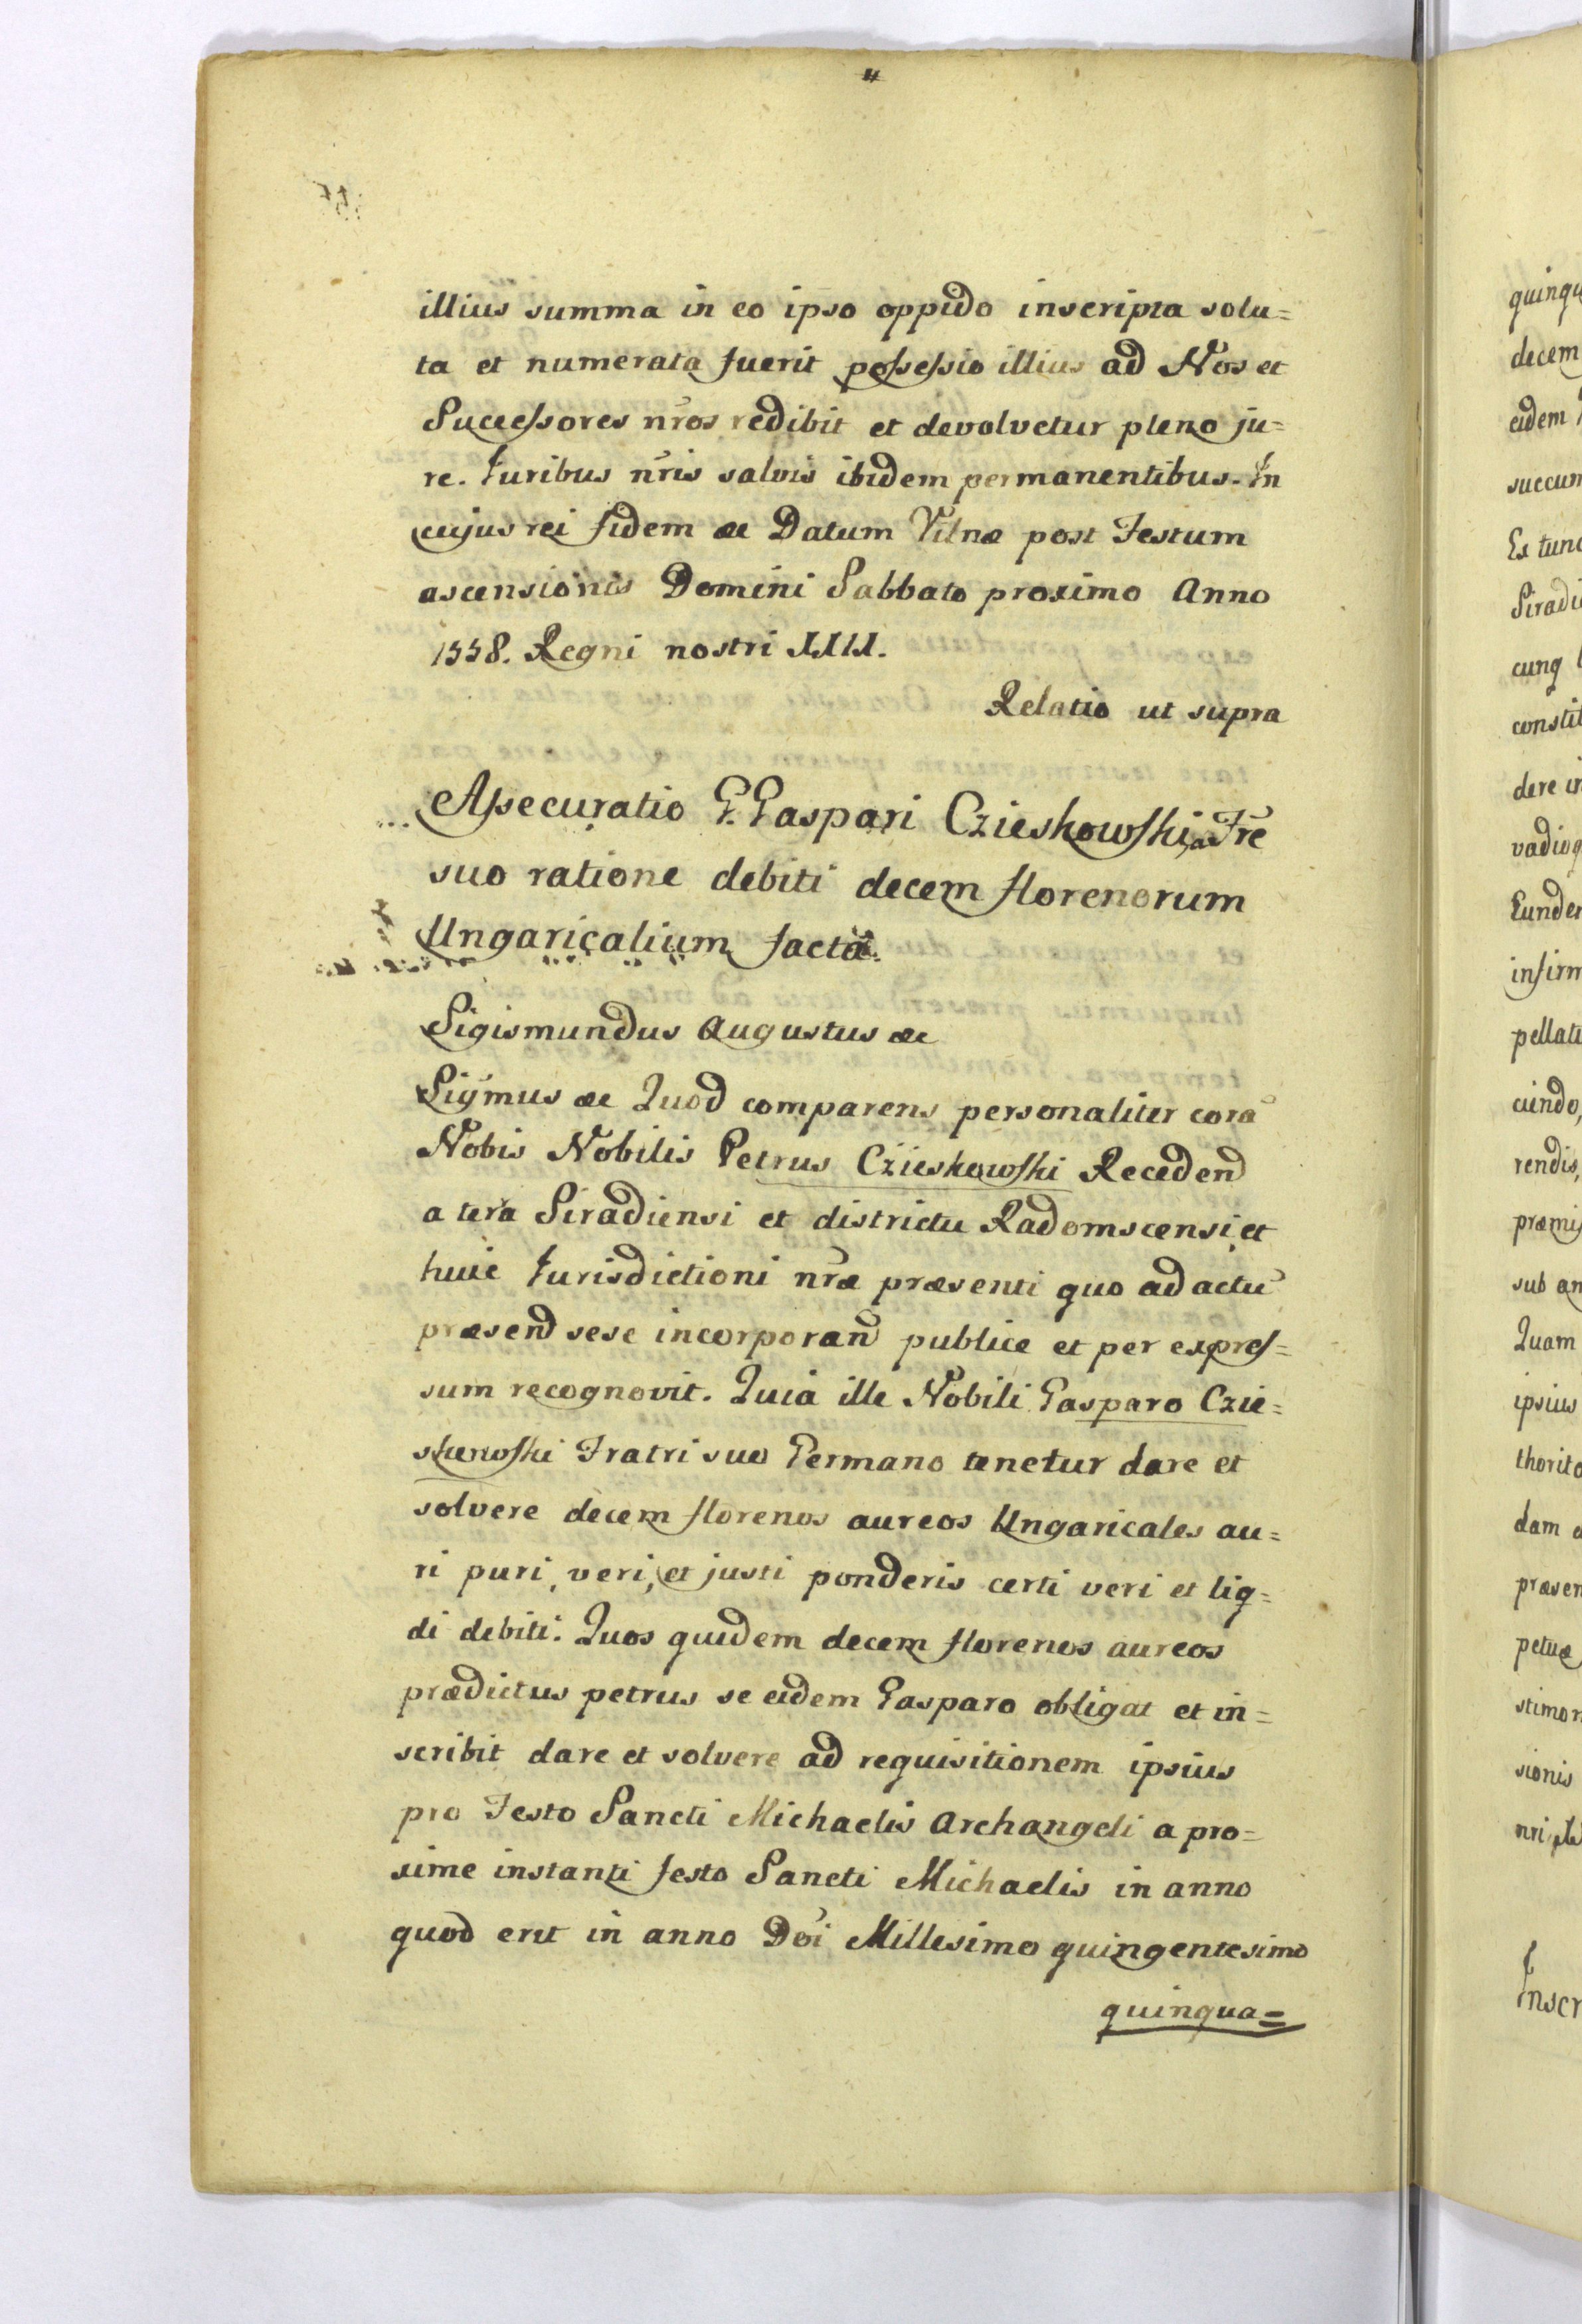 illius summa in eo ipso oppido inscripta solu=
ta et numerata fuerit possessio illius ad Nos et
Successores nr̃os redibit et devolvetur pleno ju=
re. Juribus nr̃is salvis ibidem permanentibus. In
cujus rei fidem &c Datum Vilnæ post Festum
ascensionis Domini Sabbato proximo Anno
1558. Regni nostri XXIX.
Relatio ut supra
Assecuratio G. Gaspari Czieskowski, a Frẽ
suo ratione debiti decem florenorum
Ungaricalium facta.
Sigismundus Augustus &c
Sigmus &c Quod comparens personaliter corã
Nobis Nobilis Petrus Czieskowski Recedend
a terã Siradiensi et districtu Radomscensi, et
huic Jurisdictioni nr̃æ præsenti quo ad actũ
præsend sese incorporand publice et per expres=
sum recognovit. Quia ille Nobili Gasparo Czie=
skowski Fratri suo Germano tenetur dare et
solvere decem florenos aureos Ungaricales au=
ri puri, veri, et justi ponderis certi veri et liq=
di debiti. Quos quidem decem florenos aureos
prædictus petrus se eidem Gasparo obligat et in=
scribit dare et solvere ad requisitionem ipsius
pro Festo Sancti Michaelis Archangeli a pro=
xime instanti festo Sancti Michaelis in anno
quod erit in anno Dñi Millesimo quingentesimo
quinqua=
quinqu
decem
eidem
succum
Ex tunc
Siradi
cunq
constit
dere in
vadioq
Eunde
infirm
pellati
ciendo,
rendis,
præmis
sub an
Quam
ipsius
thorita
dam
præsen
petuæ
stimon
sionis
Inscr